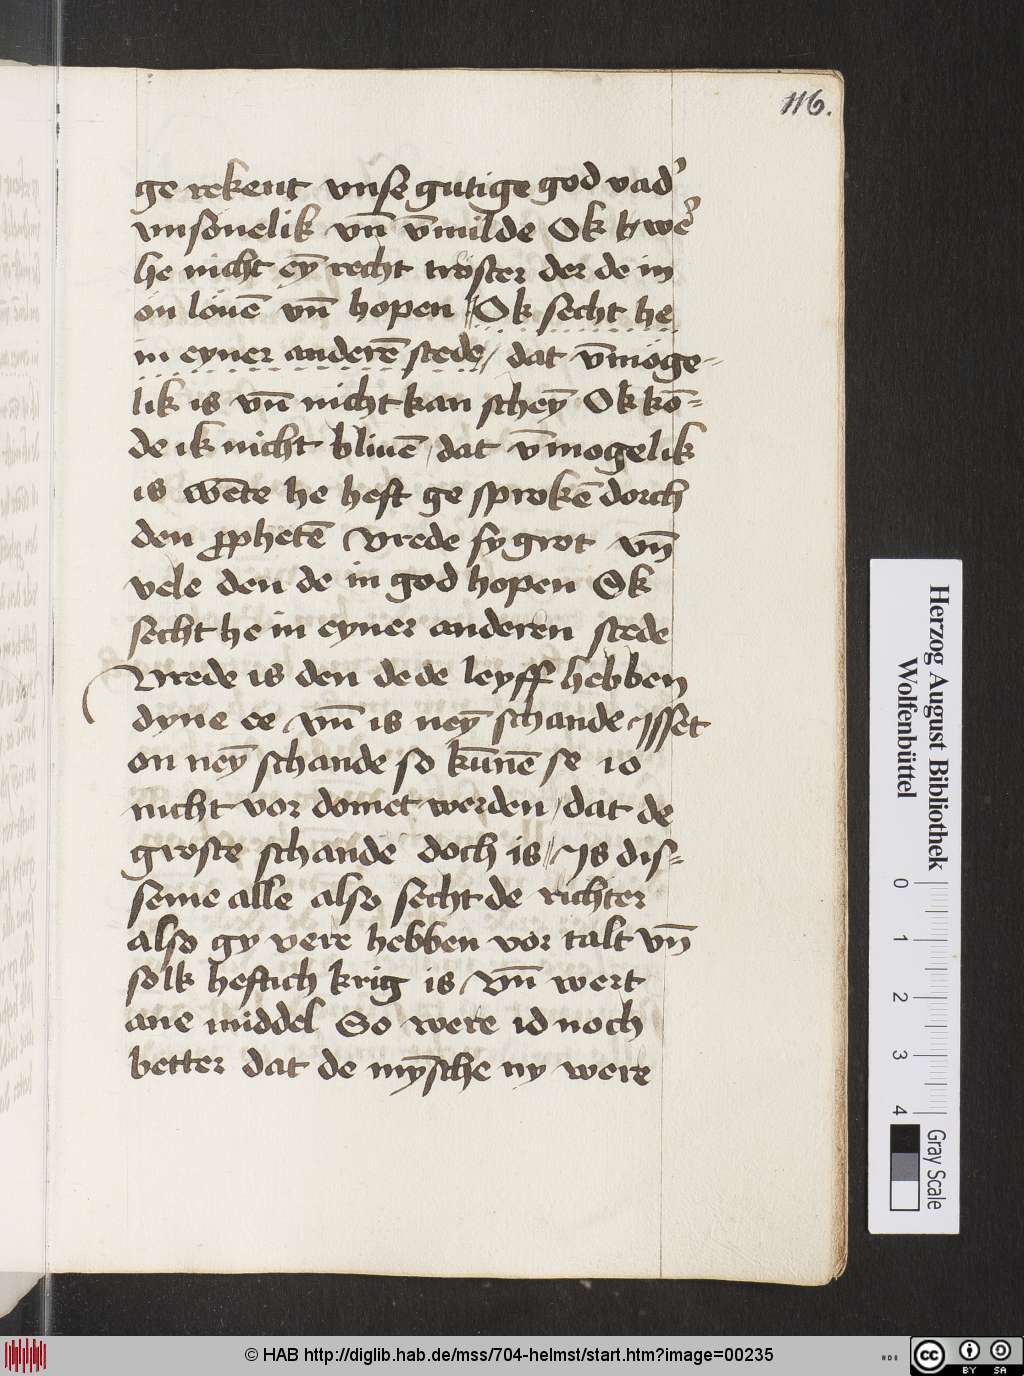 116.
ge rekent vnse gutige god vad᾽
vnsonelik vn̄ v̄milde Ok k we᾽
he nicht eȳ recht troster der de in
on louē vn̄ hopen // Ok secht he
in eyner anderē stede / dat v̄moge-
lik is vn̄ nicht kan scheȳ Ok kō=
de ik nicht bliuē / dat v̄mogelik
is wēte he heft ge sprokē dorch
den prphetē Vrede sy grot vn̄
vele den de in god hopen Ok
secht he in eyner anderen stede
Vrede is den de de leyff hebben
dyne ee vn̄ is neȳ schande Isset
on neȳ schande so kūnē se io
nicht vor domet werden / dat de
groste schande doch is // Is dis=
seme alle also secht de richter
also gy vere hebben vor talt vn̄
solk heftich krig is vn̄ wert
ane middel So were id noch
better dat de mȳsche ny were
Herzog August Bibliothek
Wolfenbüttel
0 1 2 3 4
Gray Scale
© HAB http://diglib.hab.de/mss/704-helmst/start.htm?image=00235
cc BY SA